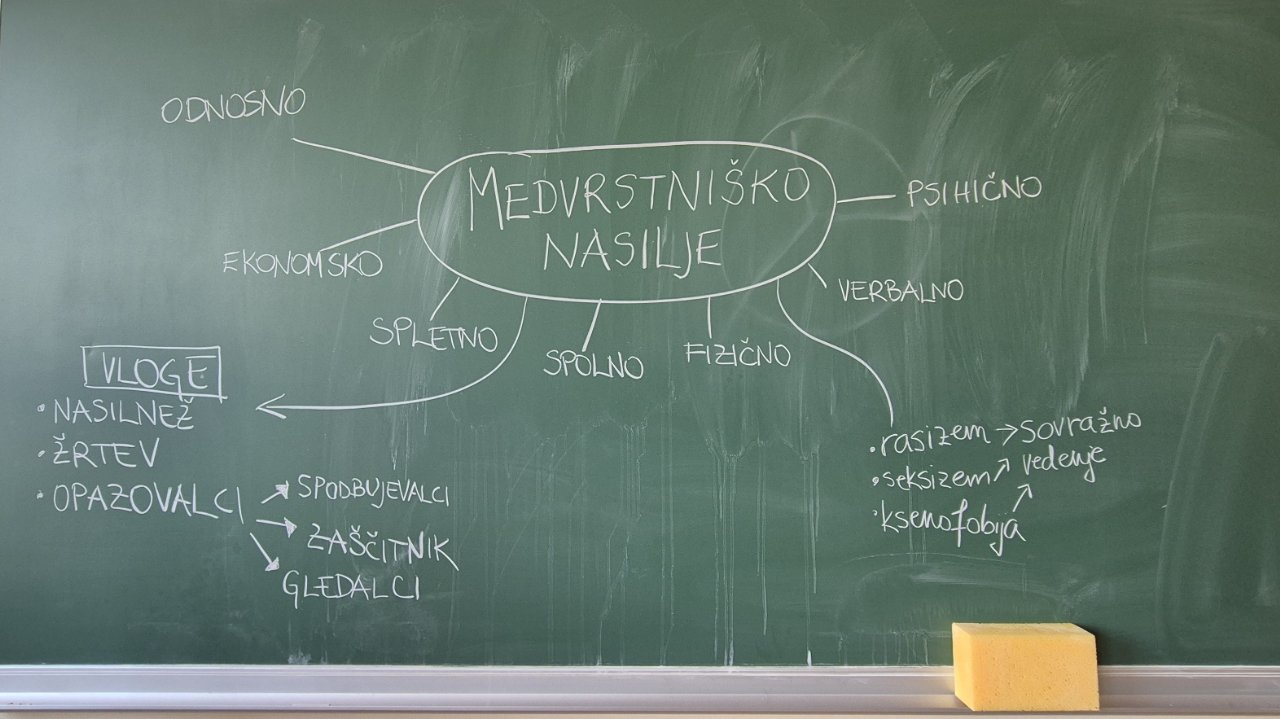 ODNOSNO
MEDVRSTNIŠKO
NASILJE
PSIHIČNO
EKONOMSKO
VERBALNO
SPLETNO
SPOLNO
FIZIČNO
VLOGE
• NASILNEŽ
• ŽRTEV
• OPAZOVALCI
→ SPODBUJEVALCI
→ ZAŠČITNIK
→ GLEDALCI
• rasizem → sovražno
• seksizem → vedenje
• ksenofobija →